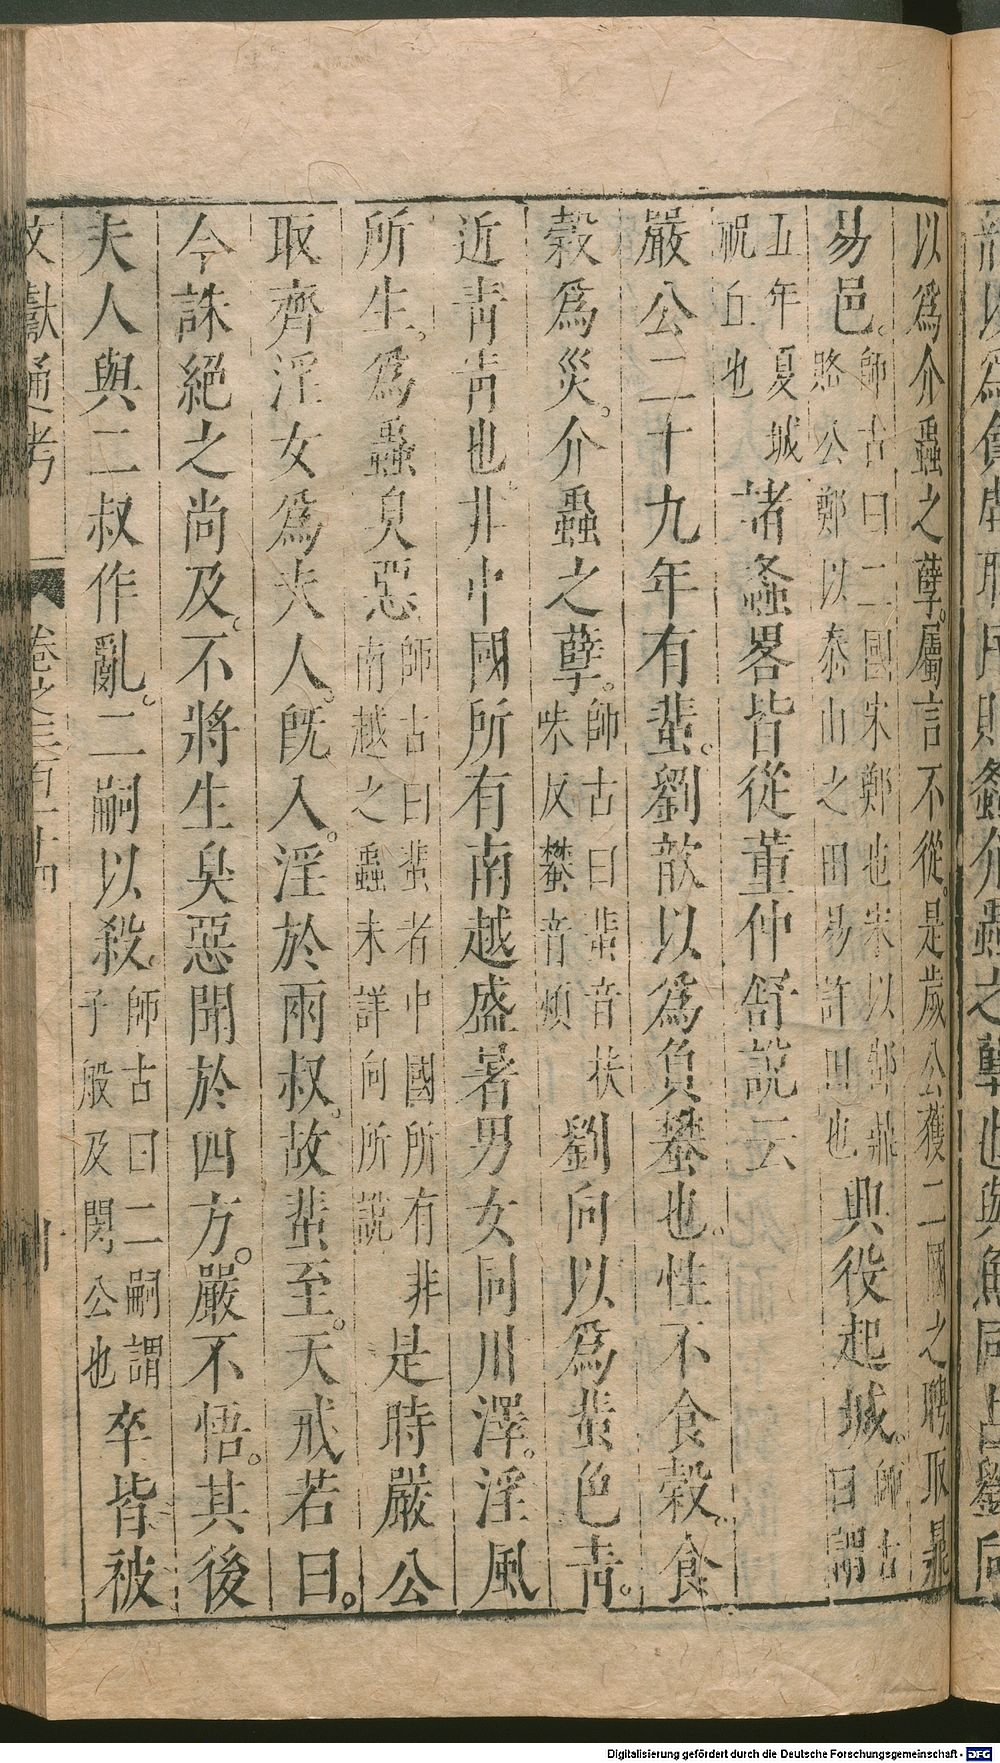 以爲介蟲之孽屬言不從是歲公獲二國之聘取鼎
易邑。師古曰二國宋鄭也宋以郜鼎賂公鄭以泰山之田易許田也興役起城。師古曰謂
五年夏城祝丘也諸螽畧皆從董仲舒說云
嚴公二十九年有蜚。劉歆以爲負蠜也。性不食穀。食
穀爲災。介蟲之孽。師古曰蜚音扶味反蠜音煩劉向以爲蜚色青。
近青眚也。非中國所有南越盛暑男女同川澤。淫風
所生。爲蟲臭惡師古曰蜚者中國所有非南越之蟲未詳向所說是時嚴公
取齊淫女爲夫人。旣入。淫於兩叔。故蜚至。天戒若曰。
今誅絕之尚及。不將生臭惡聞於四方。嚴不悟。其後
夫人與二叔作亂。二嗣以殺。師古曰二嗣謂子般及閔公也卒皆被
文獻通考 卷之三百一十四
Digitalisierung gefördert durch die Deutsche Forschungsgemeinschaft - DFG